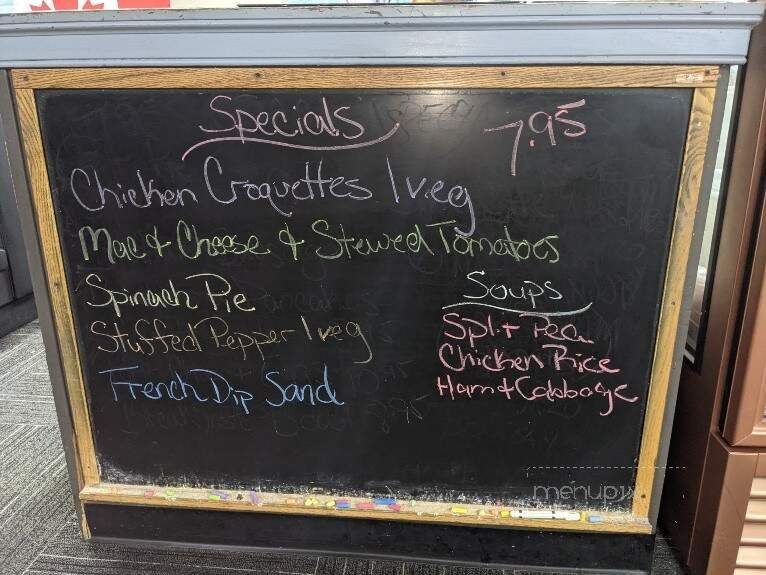 Specials
7.95
Chicken Croquettes 1 veg
Mac & Cheese & Stewed Tomatoes
Spinach Pie
Stuffed Pepper 1 veg
French Dip Sand
Soups
Split Pea
Chicken Rice
Ham & Cabbage
menupix